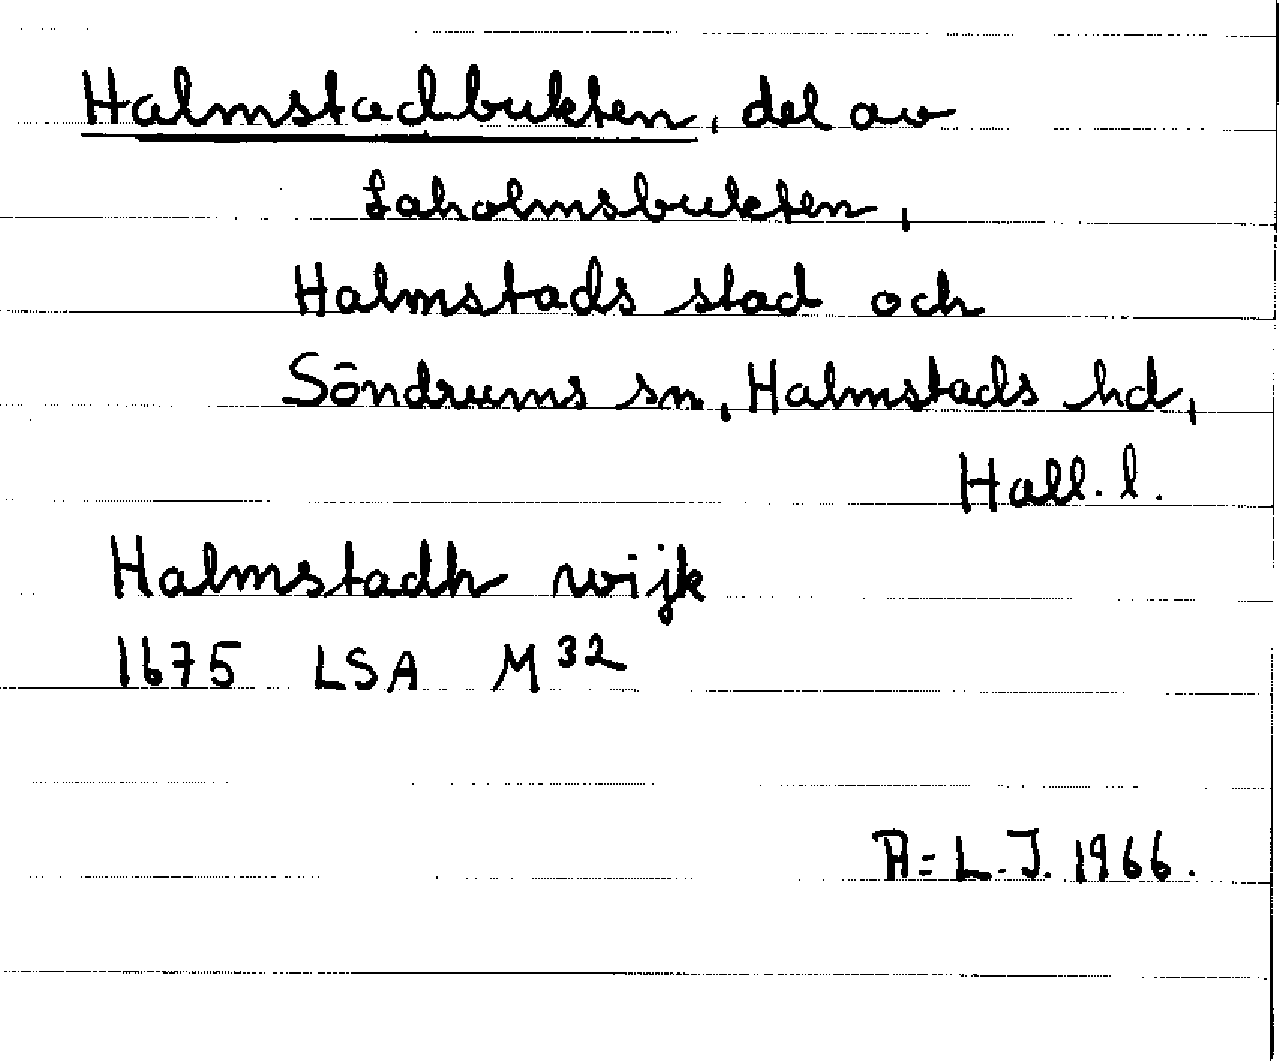 Halmstadbukten, del av
Laholmsbukten,
Halmstads stad och
Söndrums sn, Halmstads hd,
Hall. l.
Halmstadh wijk
1675 LSA M 32
A=L.J. 1966.